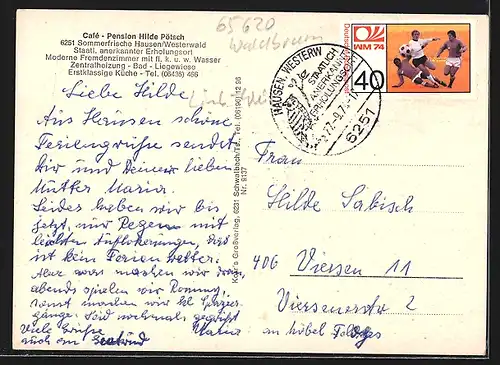 Café - Pension Hilde Pötsch
6251 Sommerfrische Hausen/Westerwald
Staatl. anerkannter Erholungsort
Moderne Fremdenzimmer mit fl. k. u. w. Wasser
Zentralheizung - Bad - Liegewiese
Erstklassige Küche - Tel. (06436) 466
65620
Waldbrunn
Liebe Hilde
Aus Hausen schöne
Feriengrüsse sendet
Dir und Deiner lieben
Mutter Maria.
Leider haben wir bis
jetzt, nur Regen mit
leichten Auflockerungen, das
ist kein Ferienwetter.
Aber was machen wir dran,
abends spielen wir Rommy,
sonst machen wir Spazier-
gänge. Seid nochmals gegrüßt
Viele Grüße Maria
auch von
König's Großverlag, 6231 Schwalbach/Ts., Tel. (06196) 12 96
Nr. 9137
HAUSEN, WESTERW
STAATLICH
ANERKANNTER
ERHOLUNGSORT
6251
Deutsche Bundespost
WM 74
40
Frau
Hilde Sabisch
406 Viersen 11
Viersenerstr 2